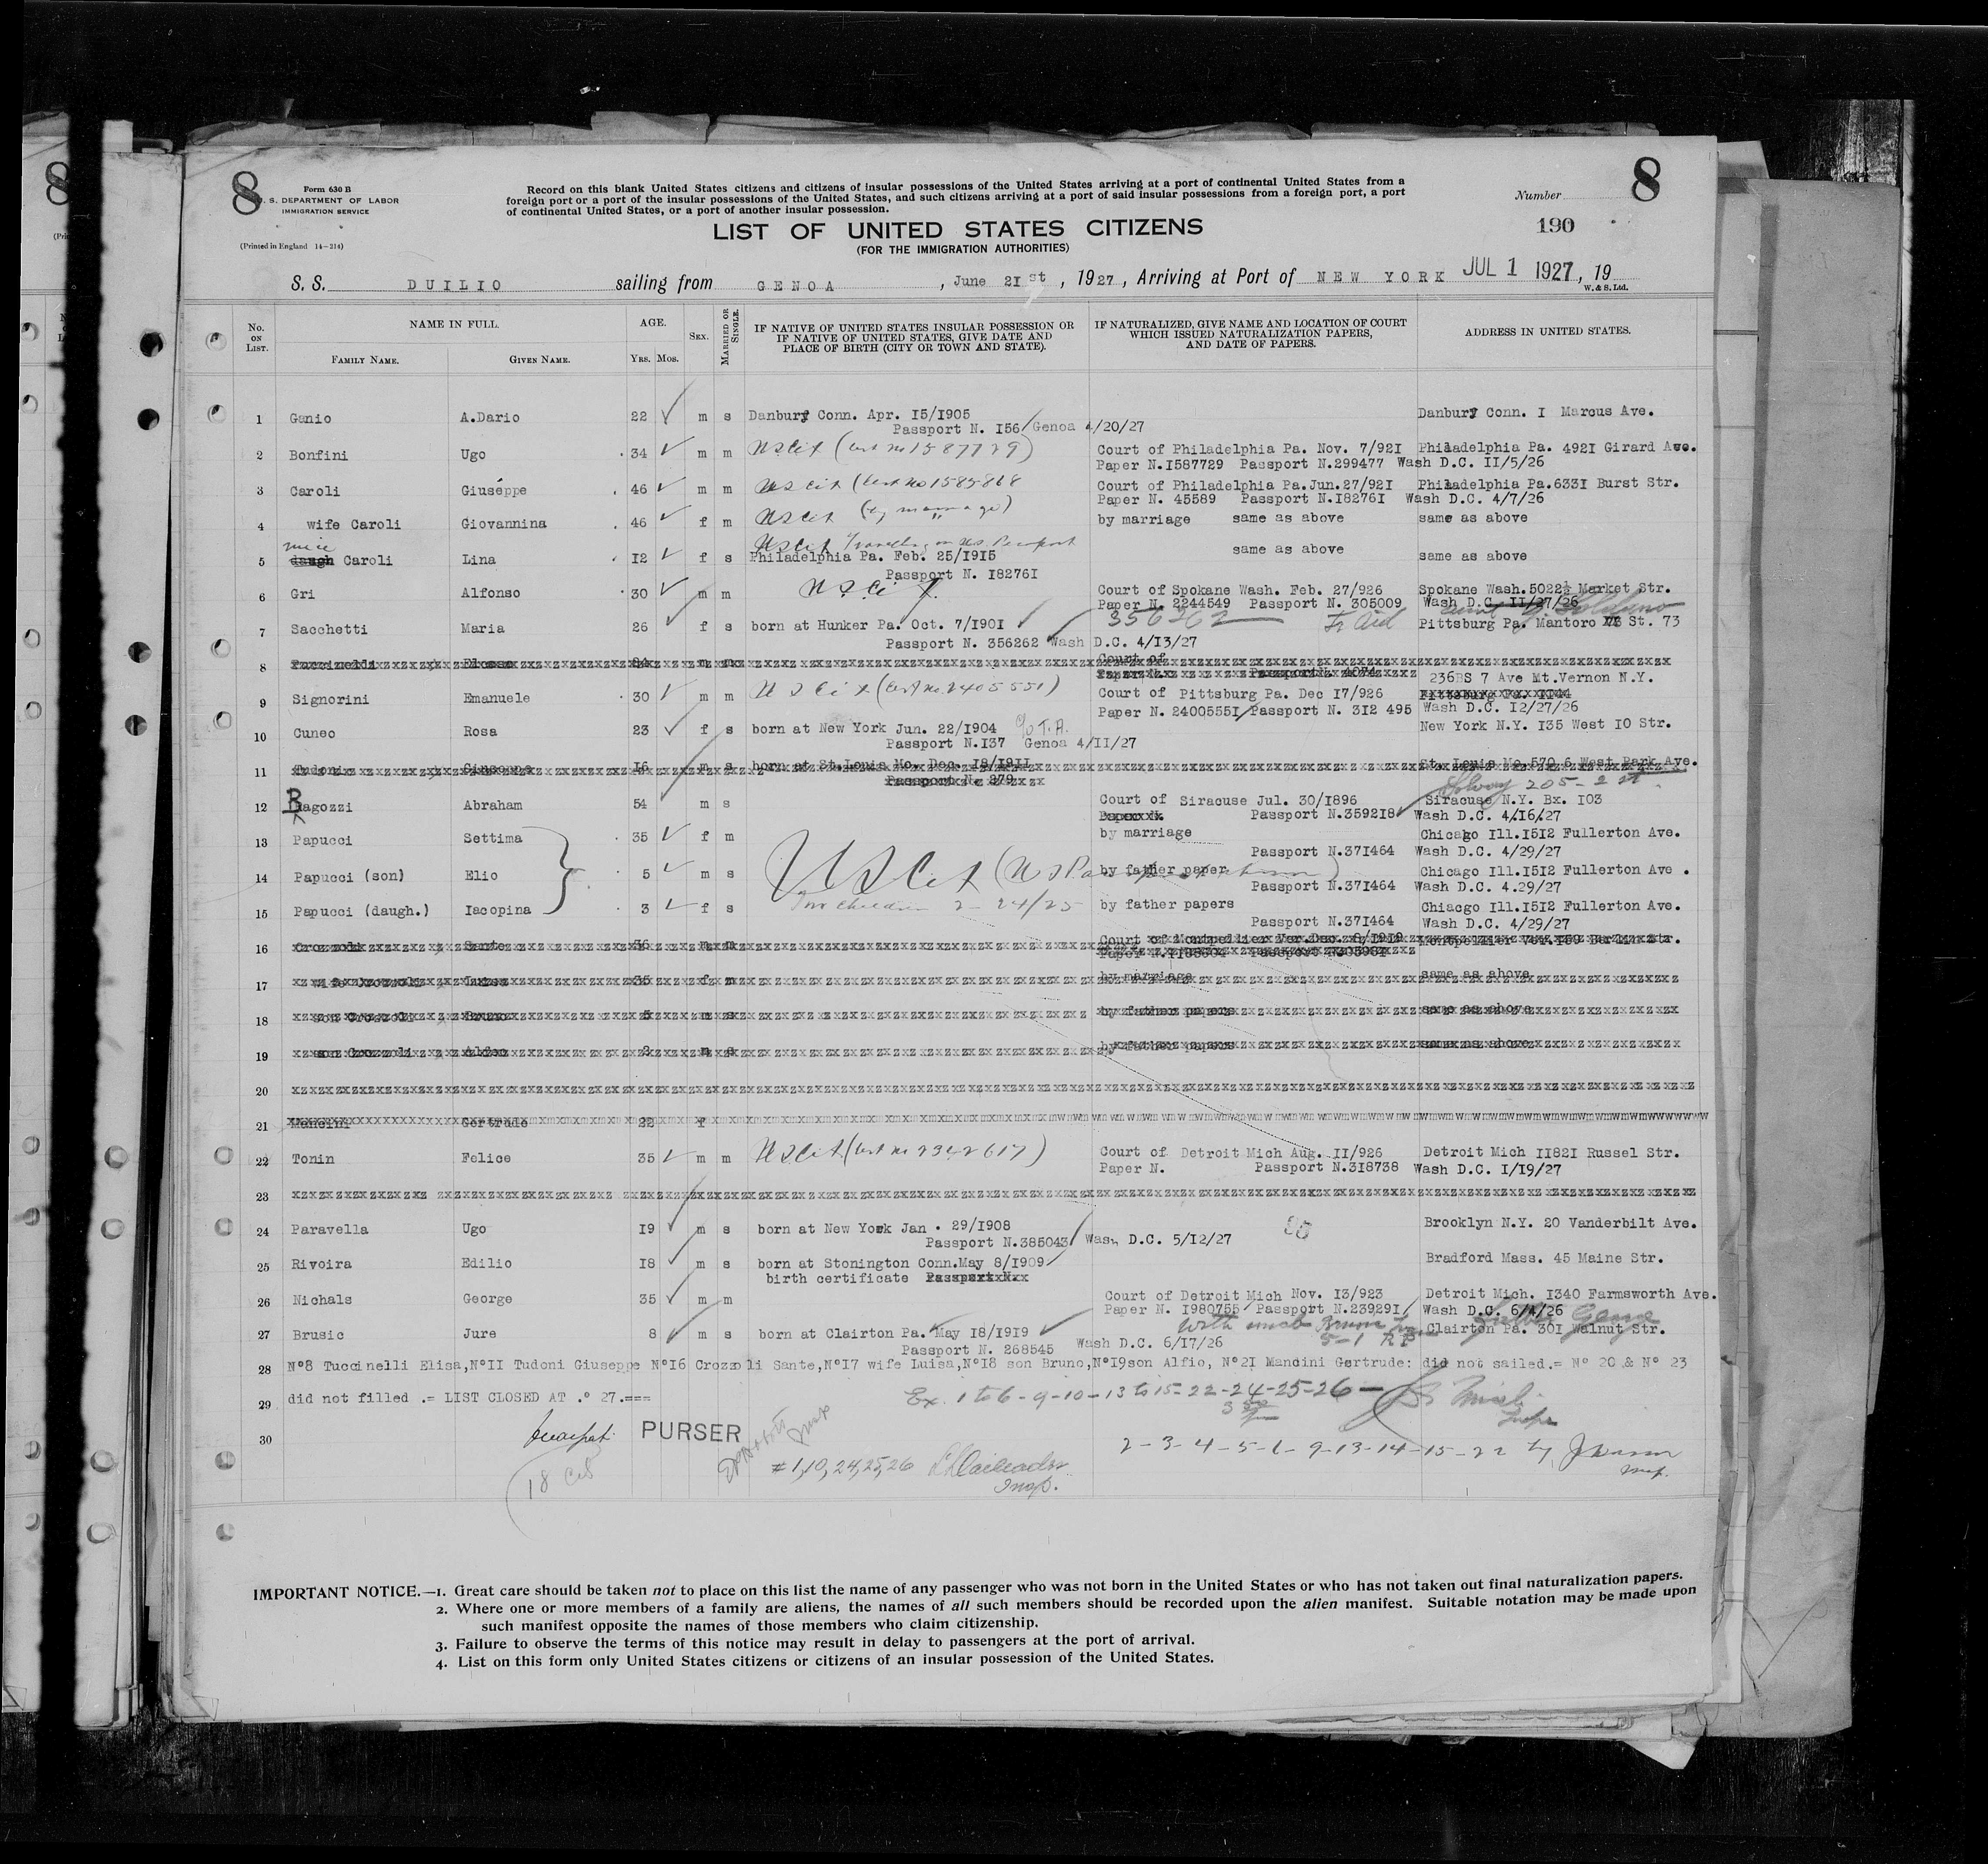 8
8
Form 630 B
U. S. DEPARTMENT OF LABOR
IMMIGRATION SERVICE
(Printed in England 14—214)
Record on this blank United States citizens and citizens of insular possessions of the United States arriving at a port of continental United States from a
foreign port or a port of the insular possessions of the United States, and such citizens arriving at a port of said insular possessions from a foreign port, a port
of continental United States, or a port of another insular possession.
Number
190
LIST OF UNITED STATES CITIZENS
(FOR THE IMMIGRATION AUTHORITIES)
S. S. DUILIO sailing from GENOA, June 21st, 1927, Arriving at Port of NEW YORK JUL 1 1927, 19
W. & S. Ltd.
No. ON LIST. NAME IN FULL. AGE. SEX. MARRIED OR SINGLE. IF NATIVE OF UNITED STATES INSULAR POSSESSION OR IF NATIVE OF UNITED STATES, GIVE DATE AND PLACE OF BIRTH (CITY OR TOWN AND STATE). IF NATURALIZED, GIVE NAME AND LOCATION OF COURT WHICH ISSUED NATURALIZATION PAPERS, AND DATE OF PAPERS. ADDRESS IN UNITED STATES.
FAMILY NAME. GIVEN NAME. YRS. MOS.
1 Ganio A.Dario 22 m s Danbury Conn. Apr. I5/I905 Danbury Conn. I Marcus Ave.
Passport N. I56 Genoa 4/20/27
2 Bonfini Ugo 34 m m US Cit (Cert no 1587729) Court of Philadelphia Pa. Nov. 7/92I Philadelphia Pa. 492I Girard Ave.
Paper N.I587729 Passport N.299477 Wash D.C. II/5/26
3 Caroli Giuseppe 46 m m US Cit (Cert no 1585868 Court of Philadelphia Pa.Jun.27/92I Philadelphia Pa.633I Burst Str.
Paper N. 45589 Passport N.I8276I Wash D.C. 4/7/26
4 wife Caroli Giovannina 46 f m US Cit (by marriage) by marriage same as above same as above
niece US Cit Travelling on U.S. Passport
5 daugh Caroli Lina I2 f s Philadelphia Pa. Feb. 25/I9I5 same as above same as above
Passport N. I8276I
6 Gri Alfonso 30 m m US Cit Court of Spokane Wash. Feb. 27/926 Spokane Wash.5022½ Market Str.
Paper N. 2244549 Passport N. 305009 Wash D.C. II/27/26
356262
7 Sacchetti Maria 26 f s born at Hunker Pa. Oct. 7/I90I Tr Aid Pittsburg Pa. Mantoro St. 73
Passport N. 356262 Wash D.C. 4/13/27
8
236BS 7 Ave Mt.Vernon N.Y.
9 Signorini Emanuele 30 m m US Cit (Cert no 2405551) Court of Pittsburg Pa. Dec I7/926
Paper N. 240055I Passport N. 3I2 495 Wash D.C. I2/27/26
10 Cuneo Rosa 23 f s born at New York Jun. 22/I904 c/o T.A. New York N.Y. I35 West I0 Str.
Passport N.I37 Genoa 4/II/27
11 Tudoni Giuseppe I6 m s born at St.Louis Mo. Dec. I8/I9II St. Louis Mo.570 6 West Park Ave.
Passport N. 279
Solvay 205-2 St.
12 Ragozzi Abraham 54 m s Court of Siracuse Jul. 30/I896 Siracuse N.Y. Bx. I03
Passport N.3592I8 Wash D.C. 4/I6/27
13 Papucci Settima 35 f m by marriage Chicago Ill.I5I2 Fullerton Ave.
Passport N.37I464 Wash D.C. 4/29/27
14 Papucci (son) Elio 5 m s US Cit by father paper Chicago Ill.I5I2 Fullerton Ave .
Passport N.37I464 Wash D.C. 4.29/27
15 Papucci (daugh.) Iacopina 3 f s two children 2-24/25 by father papers Chiacgo Ill.I5I2 Fullerton Ave.
Passport N.37I464 Wash D.C. 4/29/27
16 Crozzoli Sante 36 m m
17 wife Crozzoli Luisa 35 f m by marriage same as above
18 son Crozzoli Bruno 5 m s by father papers same as above
19 son Crozzoli 2 m s by father papers same as above
20
21 Mancini Gertrude 22 f
22 Tonin Felice 35 m m US Cit (Cert no 2342617) Court of Detroit Mich Aug. II/926 Detroit Mich II82I Russel Str.
Paper N. Passport N.3I8738 Wash D.C. I/I9/27
23
24 Paravella Ugo I9 m s born at New York Jan . 29/I908 Brooklyn N.Y. 20 Vanderbilt Ave.
Passport N.385043 Wash D.C. 5/I2/27
25 Rivoira Edilio I8 m s born at Stonington Conn.May 8/I909 Bradford Mass. 45 Maine Str.
birth certificate
26 Nichals George 35 m m Court of Detroit Mich Nov. I3/923 Detroit Mich. I340 Farmsworth Ave.
Paper N. I980755 Passport N.23929I Wash D.C. 6/4/26
27 Brusic Jure 8 m s born at Clairton Pa. May I8/I9I9 Clairton Pa. 30I Walnut Str.
Passport N. 268545 Wash D.C. 6/I7/26
28 N°8 Tuccinelli Elisa,N°II Tudoni Giuseppe N°I6 Crozzoli Sante,N°I7 wife Luisa,N°I8 son Bruno,N°I9son Alfio, N°2I Mancini Gertrude: did not sailed.= N° 20 & N° 23
29 did not filled .= LIST CLOSED AT .° 27.===
Ex. 1 to 6 - 9-10 - 13 to 15- 22 -24-25-26
30 PURSER
2 - 3- 4 - 5 - 6 - 9 -13 -14 -15 - 22 by
# 1, 10, 24, 25, 26
Insp.
18 Cit
IMPORTANT NOTICE.—1. Great care should be taken not to place on this list the name of any passenger who was not born in the United States or who has not taken out final naturalization papers.
2. Where one or more members of a family are aliens, the names of all such members should be recorded upon the alien manifest. Suitable notation may be made upon
such manifest opposite the names of those members who claim citizenship.
3. Failure to observe the terms of this notice may result in delay to passengers at the port of arrival.
4. List on this form only United States citizens or citizens of an insular possession of the United States.